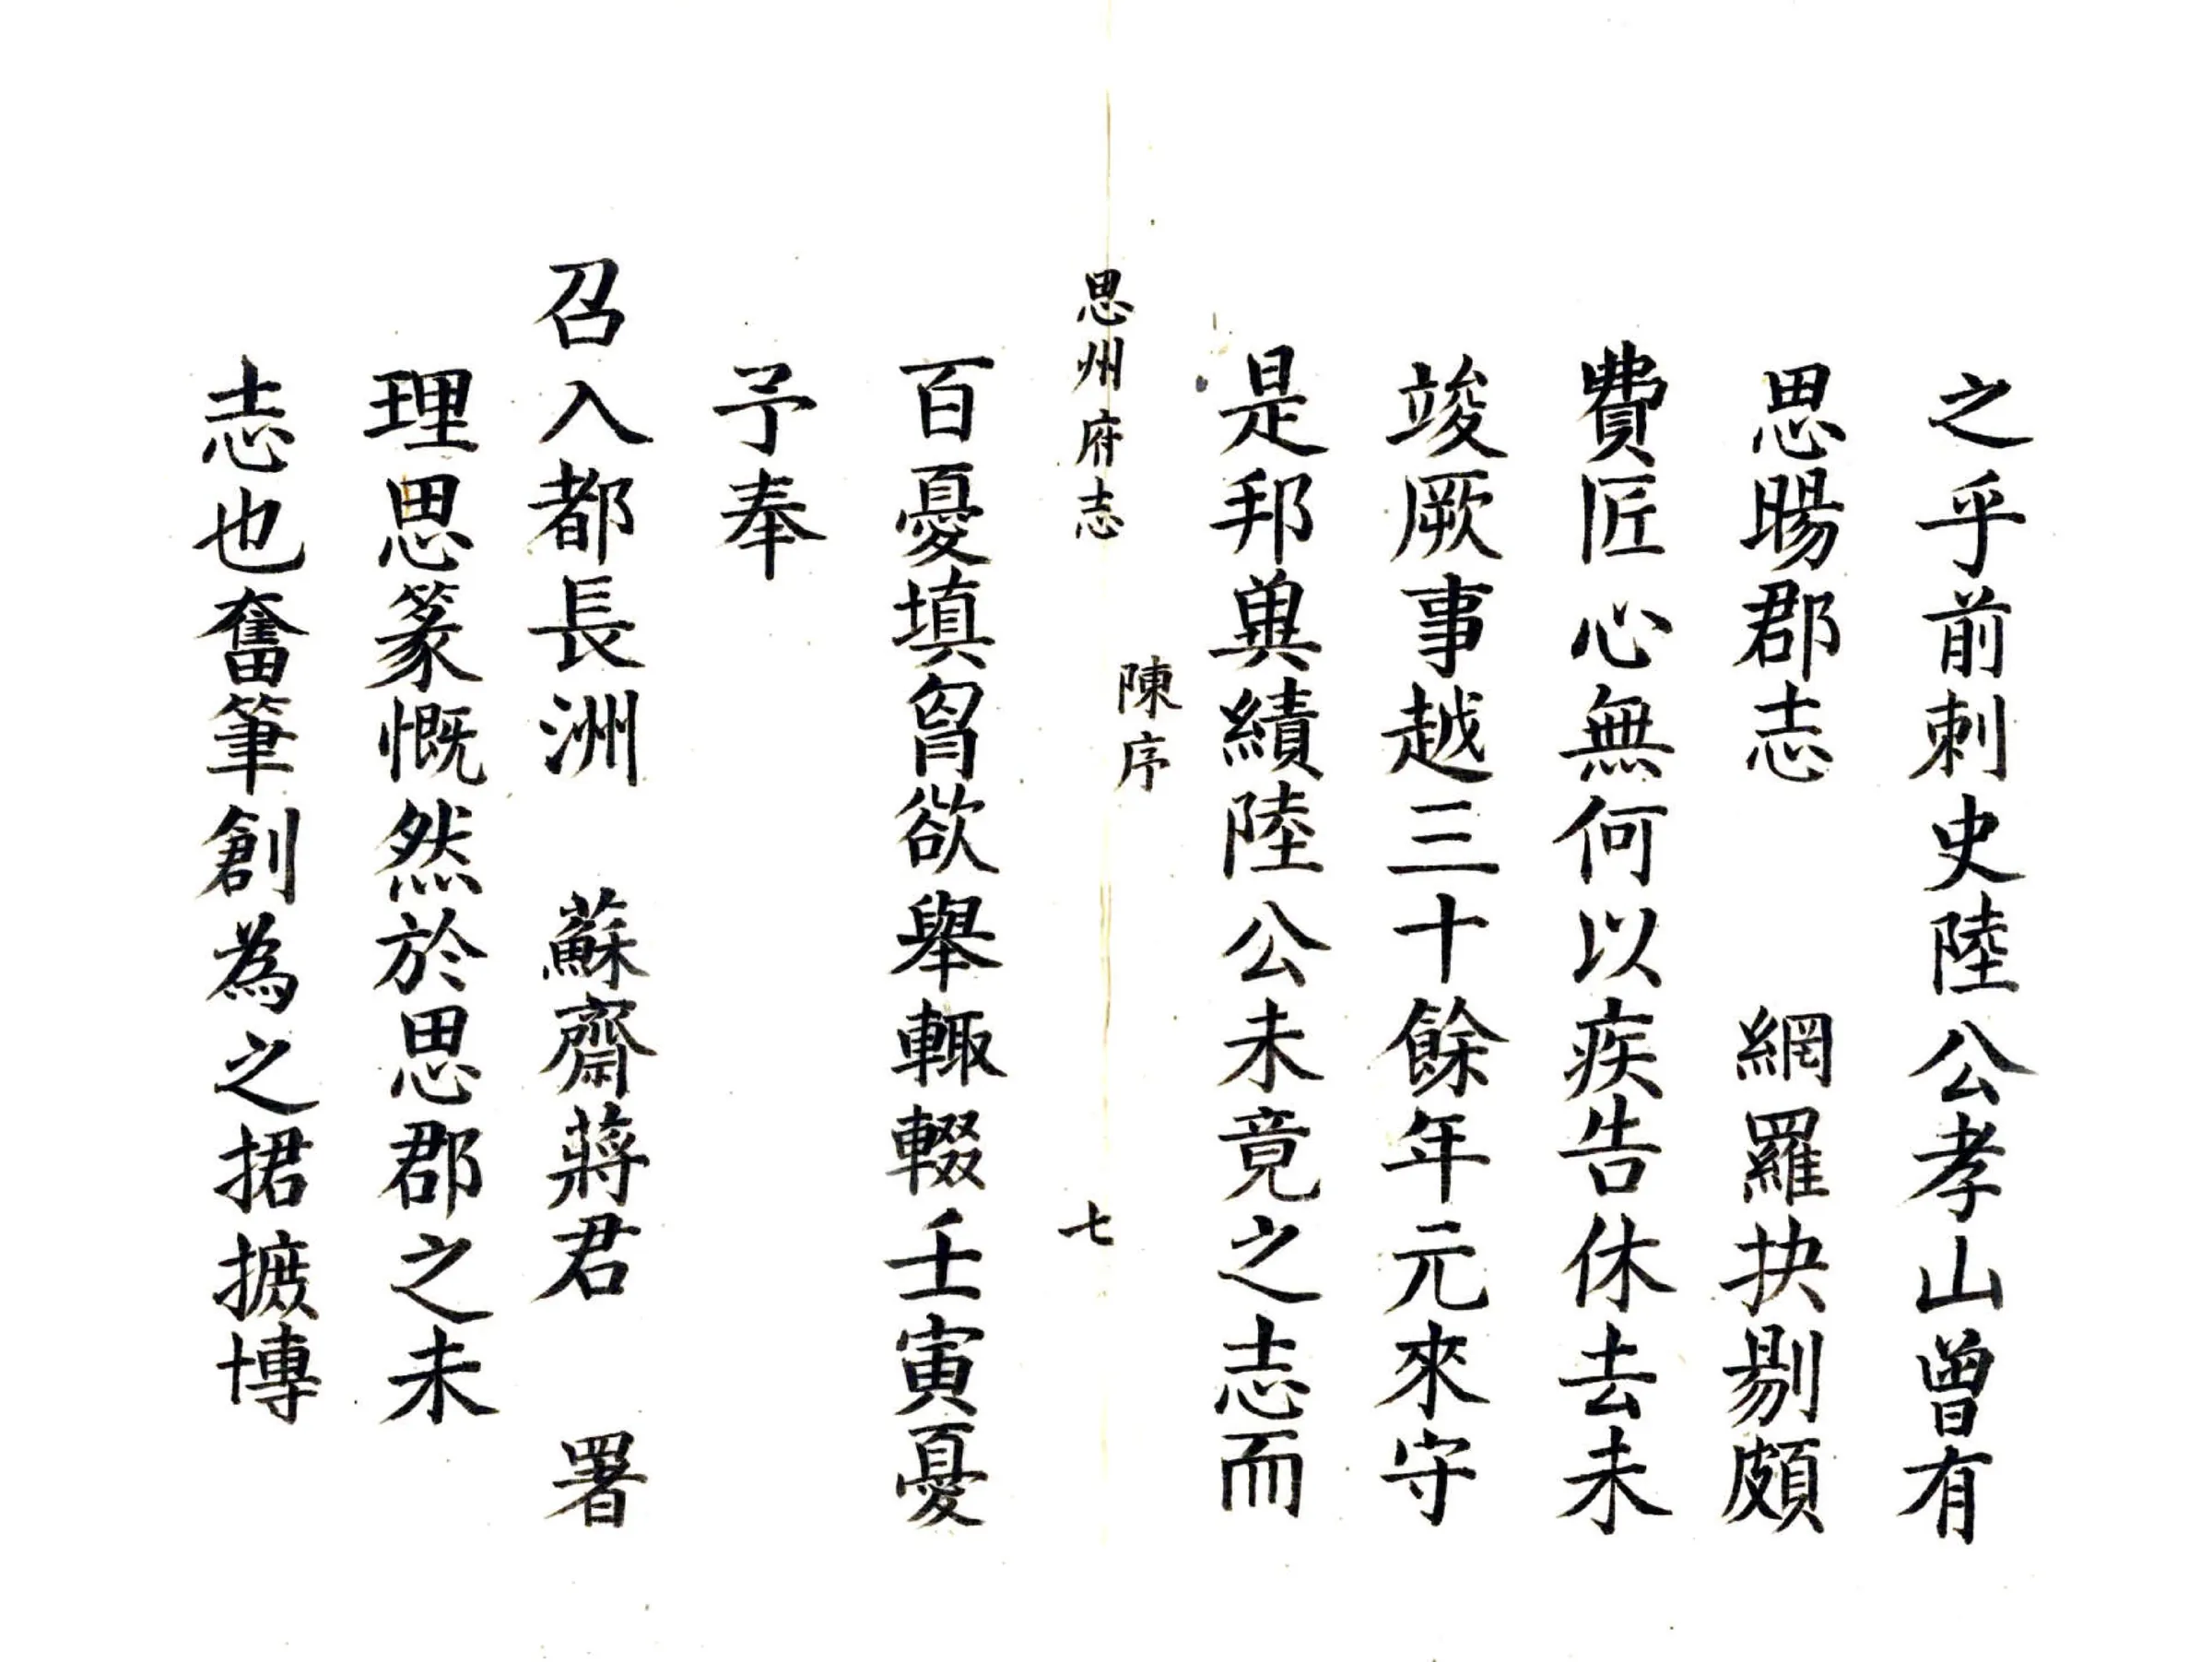 之乎前刺史陸公孝山曾有
思暘郡志　網羅抉剔頗
費匠心無何以疾告休去未
竣厥事越三十餘年元來守
是邦興績陸公未竟之志而
思州府志　陳序　七
百憂填胷欲舉輙輟壬寅憂
予奉
召入都長洲　蘇齋蔣君　署
理思篆慨然於思郡之未
志也奮筆創為之捃摭博